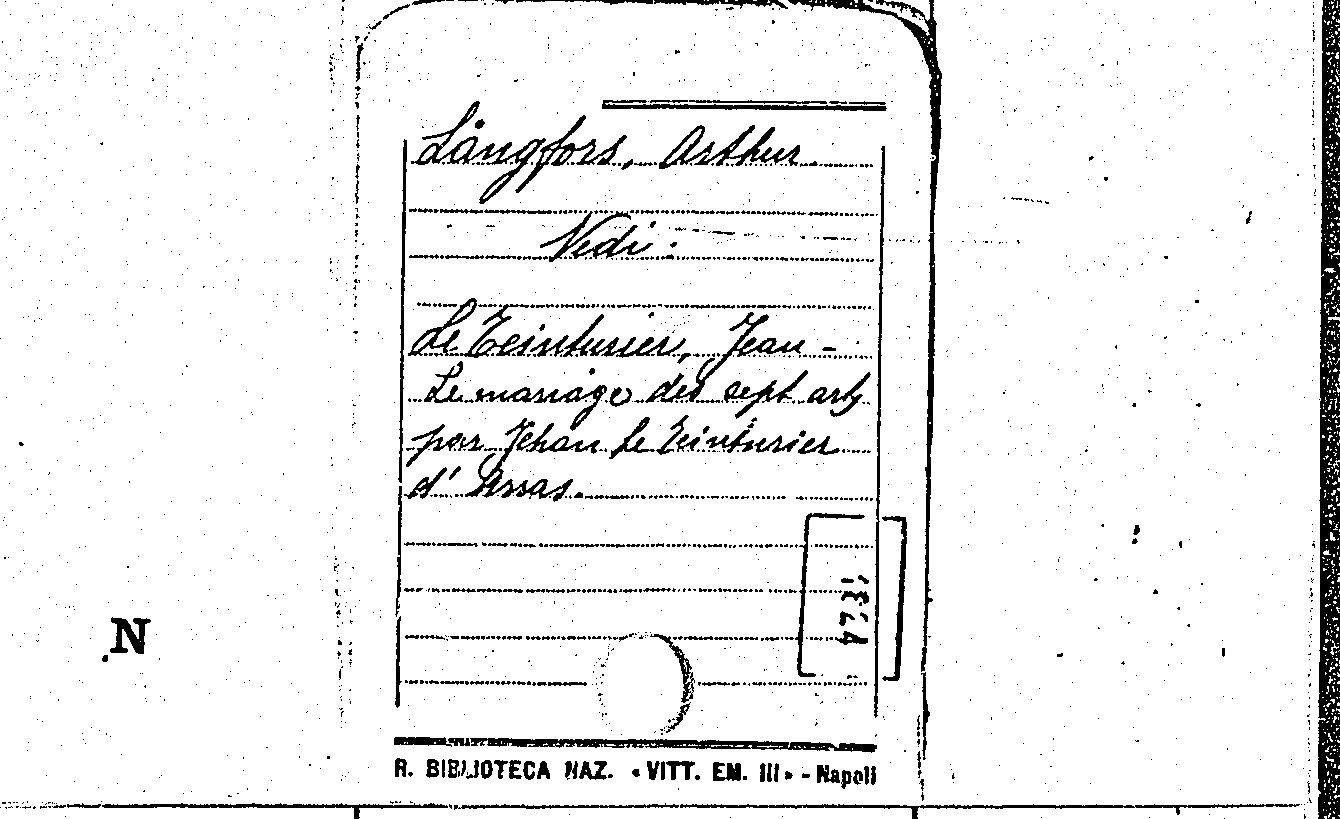 Långfors, Arthur
Vedi:
Le Teinturier, Jean -
Le mariage des sept arts
par Jehan le Teinturier
d' Arras.
N
R. BIBLIOTECA NAZ. «VITT. EM. III» - Napoli